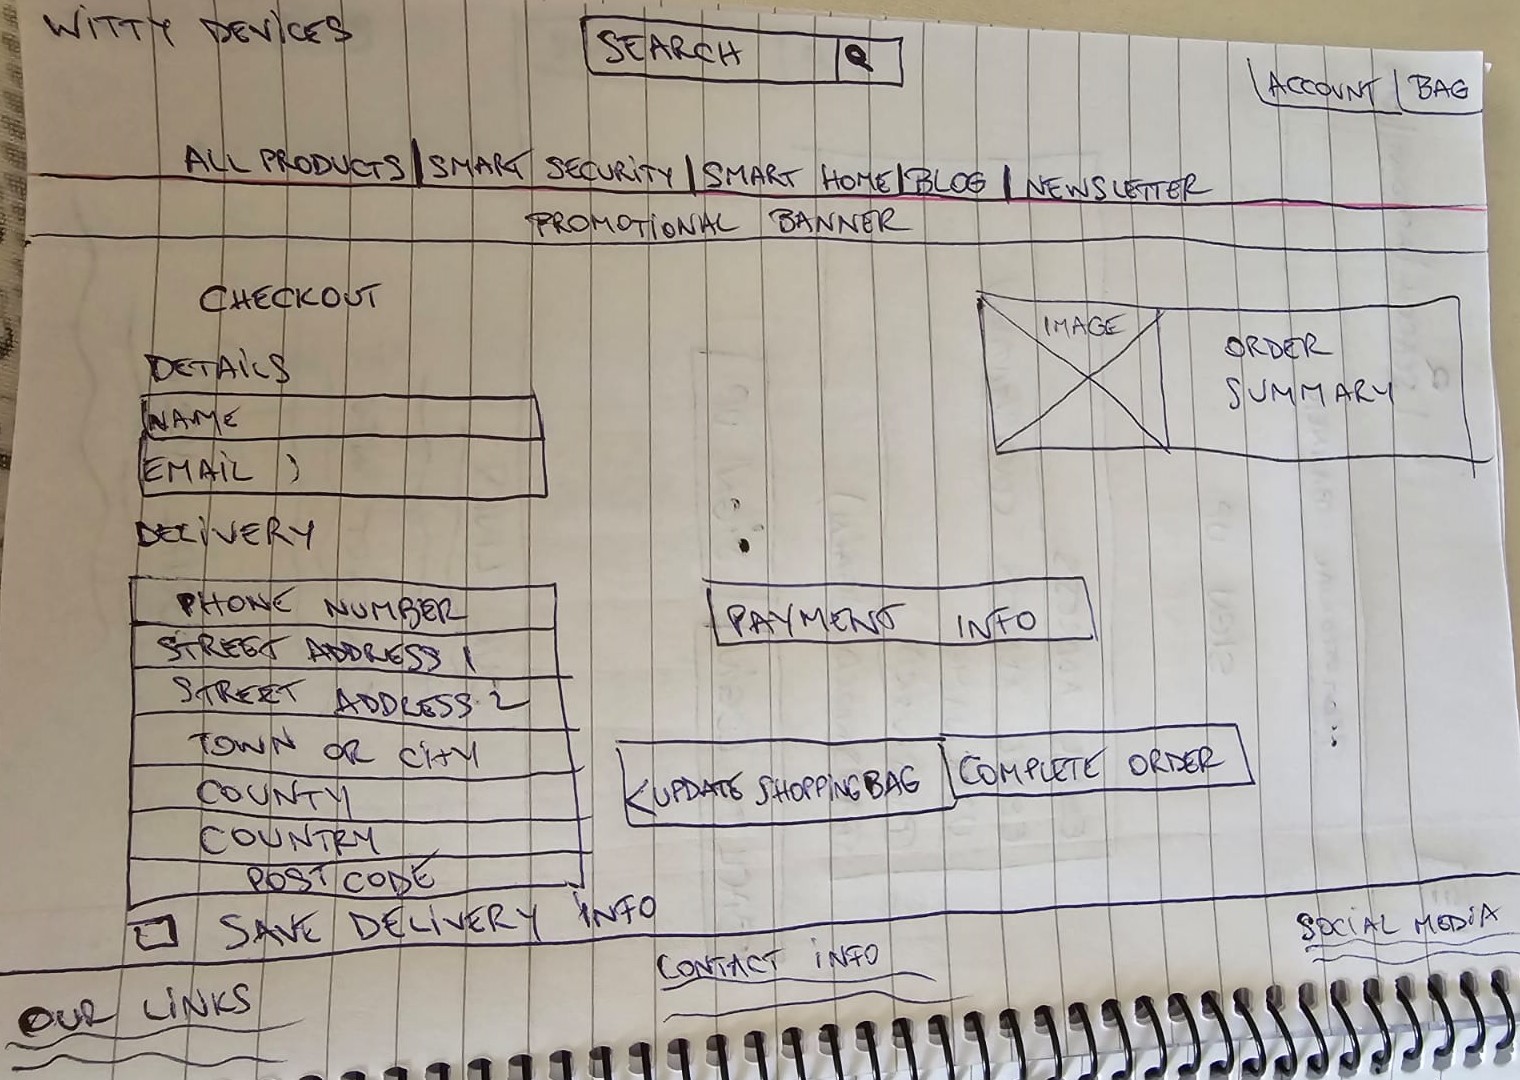 WITTY DEVICES
SEARCH
ACCOUNT | BAG
ALL PRODUCTS | SMART SECURITY | SMART HOME | BLOG | NEWSLETTER
PROMOTIONAL BANNER
CHECKOUT
IMAGE
ORDER
SUMMARY
DETAILS
NAME
EMAIL )
DELIVERY
PHONE NUMBER
STREET ADDRESS 1
STREET ADDRESS 2
TOWN OR CITY
COUNTY
COUNTRY
POST CODE
SAVE DELIVERY INFO
PAYMENT INFO
< UPDATE SHOPPING BAG
COMPLETE ORDER
OUR LINKS
CONTACT INFO
SOCIAL MEDIA